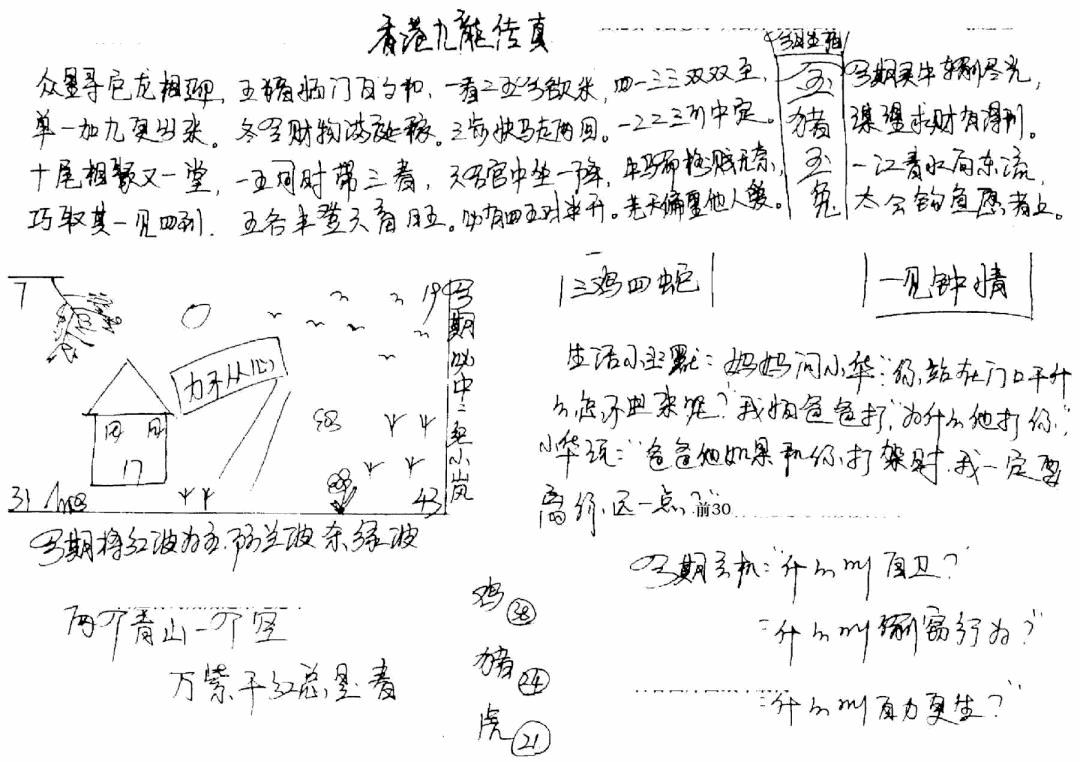 香港九龍传真
今日生肖
众星寻它龙相迎, 五猪临门百和, 一看二五今欲来, 四一三三双双至,
单一加九更出来。冬令财物满庭稼。三步快马走两回。一22三可中定。
十尾相聚又一堂, 一五同时带三春, 天官中坐一降,
巧取其一见四到. 五谷丰登天育日五。必有四五对半开。先天偏里他人娶。
玉猪玉兔
今期买牛转到尽光,
谋望求财有得利。
一江春水向东流,
太公钓鱼愿者上。
三鸡四蛇
一见钟情
7
19
力不从心
17
31
43
今期必中二包小岚
生活小幽默: 妈妈问小华"你站在门口干什
么还不进来呢?" 我怕爸爸打", "为什么他打你",
小华说:"爸爸他如果和你打架时, 我一定要
离你远一点?"前30
今期将红波为主, 防兰波杀绿波
今期玄机:"什么叫自卫?"
"什么叫行为?"
"什么叫自力更生?"
两个青山一个空
万紫千红总是春
鸡 38
猪 24
虎 21